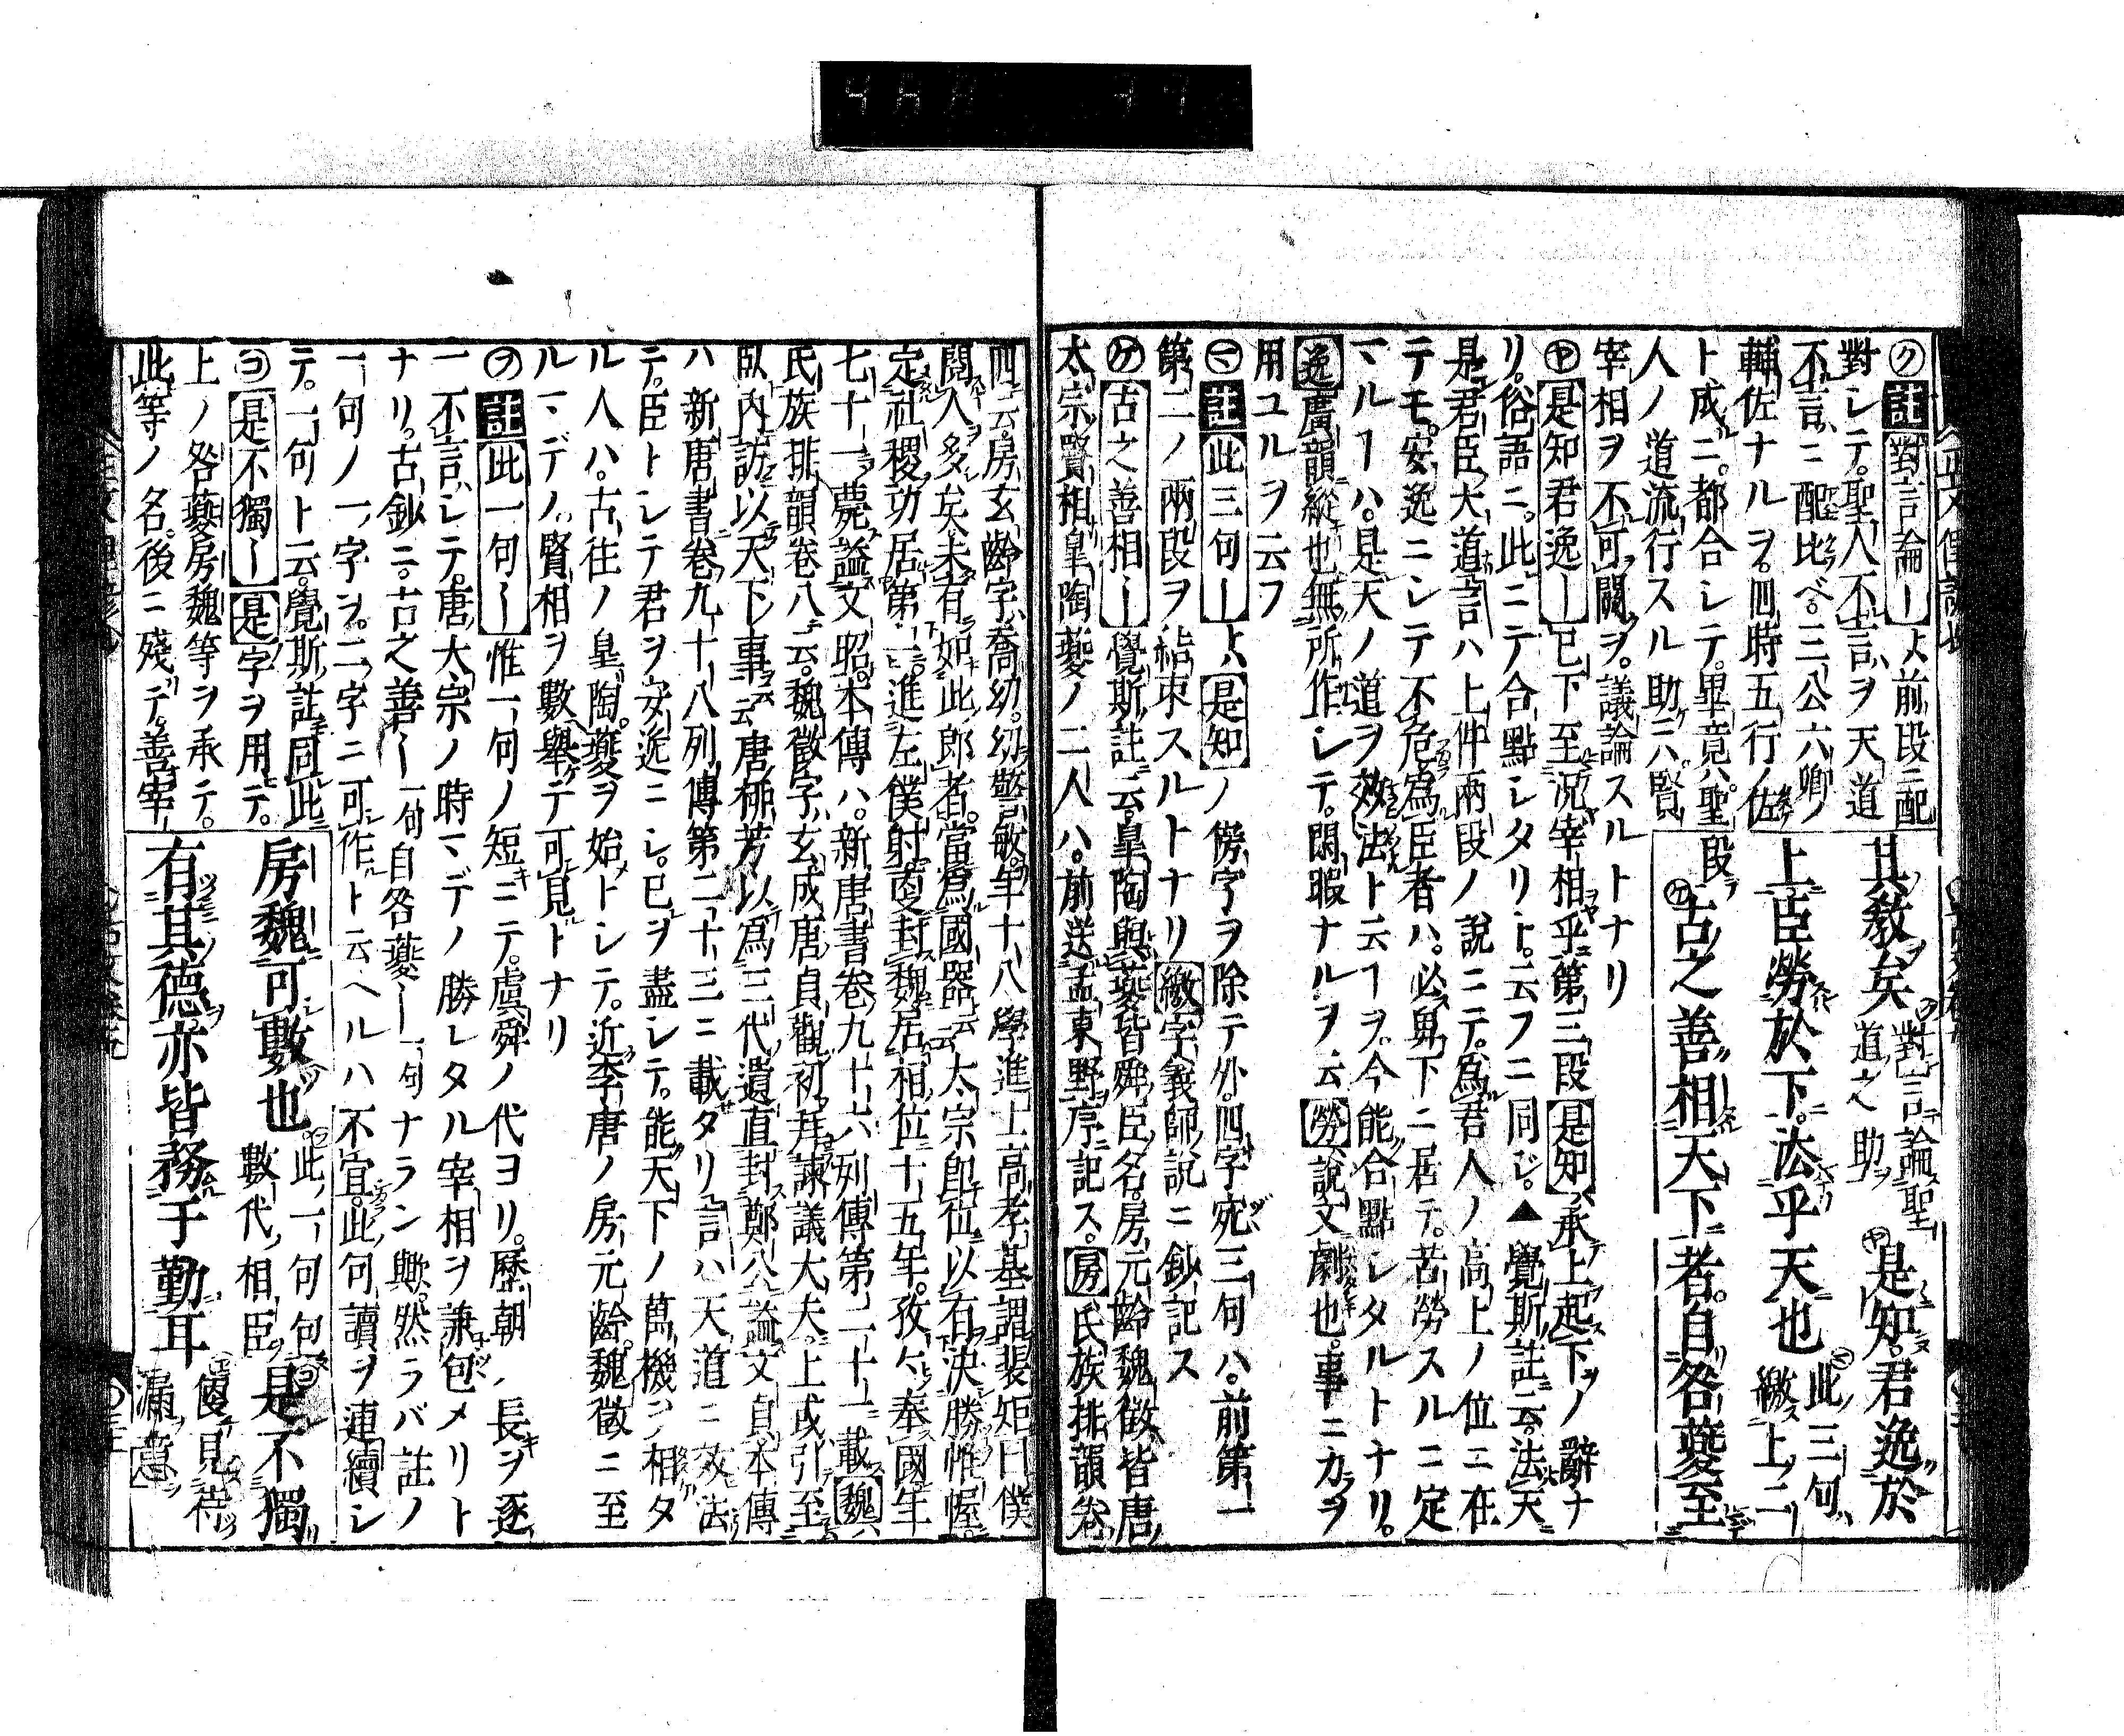 ㋗註對言論｜ハ前段ニ配
對シテ。聖人不言ヲ天道
不言ニ配比ベ。三公六卿ノ
輔佐ナルヲ。四時五行ノ佐
ト成ニ。都合シテ。畢竟ハ聖
人ノ道流行スル助ハ。賢
宰相ヲ不可闕ヲ。議論スルトナリ
其敎矣 對言論聖
道之助 ㋳是知君逸於
上臣勞於下。法乎天也 ㋮此三句
繳上二
段 ㋘古之善相天下者。自咎夔至
㋳是知君逸｜已下至況宰相乎第三段是知ハ承上起下ノ辭ナ
リ。俗語ニ。此ニテ合點シタリト。云フニ同ジ。▲覺斯註云。法天
是君臣大道言ハ上件兩段ノ說ニテ。爲君人ノ高上ノ位ニ在
テモ。安逸ニシテ不危爲臣者ハ。必卑下ニ居テ。苦勞スルニ定
マルヿハ。是天ノ道ヲ效法ト云ヿヲ。今能合點シタルトナリ。
逸廣韻縱也無所作シテ。閑暇ナルヲ云勞說文劇也。事ニカヲ
用ユルヲ云フ
㋮註此三句｜ハ是知ノ傍字ヲ除テ外。四字宛三句ハ。前第一
第二ノ兩段ヲ結束スルトナリ繳字義師說ニ鈔記ス
㋘古之善相｜覺斯註云。皐陶與夔皆舜臣名。房元齡魏徵皆唐
太宗賢相皐陶夔ノ二人ハ。前送孟東野序記ス。房氏族排韻卷
四云。房玄齡字喬幼。幼警敏。年十八學進士高孝基謂裴矩曰僕
閱人多矣未有如此郎者。當爲國器云云太宗卽位以有決勝帷幄。
定社稷功居第一進左僕射更封魏居相位十五年。孜孜奉國年
七十一薨謚文昭。本傳ハ。新唐書卷九十六列傳第二十一載魏ハ
氏族排韻卷八云。魏徵字玄成唐貞觀初拜諫議大夫。上或引至
臥內訪以天下事云云唐柳芳以爲三代遺直封鄭公謚文貞本傳
ハ新唐書卷九十八列傳第二十三ニ載タリ言ハ天道ニ效法
テ。臣トシテ君ヲ安逸ニシ。已ヲ盡シテ。能天下ノ萬機ヲ相タ
ル人ハ。古往ノ皐陶。夔ヲ始トシテ。近李唐ノ房元齡。魏徵ニ至
ルマデノ。賢相ヲ數擧テ可見トナリ
㋫註此一句｜惟一句ノ短ニテ。虞舜ノ代ヨリ。歷朝ノ長ヲ逐
一不言シテ。唐大宗ノ時マデノ勝レタル宰相ヲ兼包メリト
ナリ。古鈔ニ。古之善｜一句自咎夔｜一句ナラン歟。然ラバ註ノ
一句ノ一字ヲ。二字ニ可作ト云ヘルハ不宜。此句讀ヲ連續シ
テ。一句ト云。覺斯註同此
㋵是不獨｜是字ヲ用テ。
上ノ咎夔房魏等ヲ承テ。
此等ノ名。後ニ殘テ。善宰
房魏可數也 ㋫此一句包
數代相臣 ㋵是不獨
有其德亦皆務于勤耳